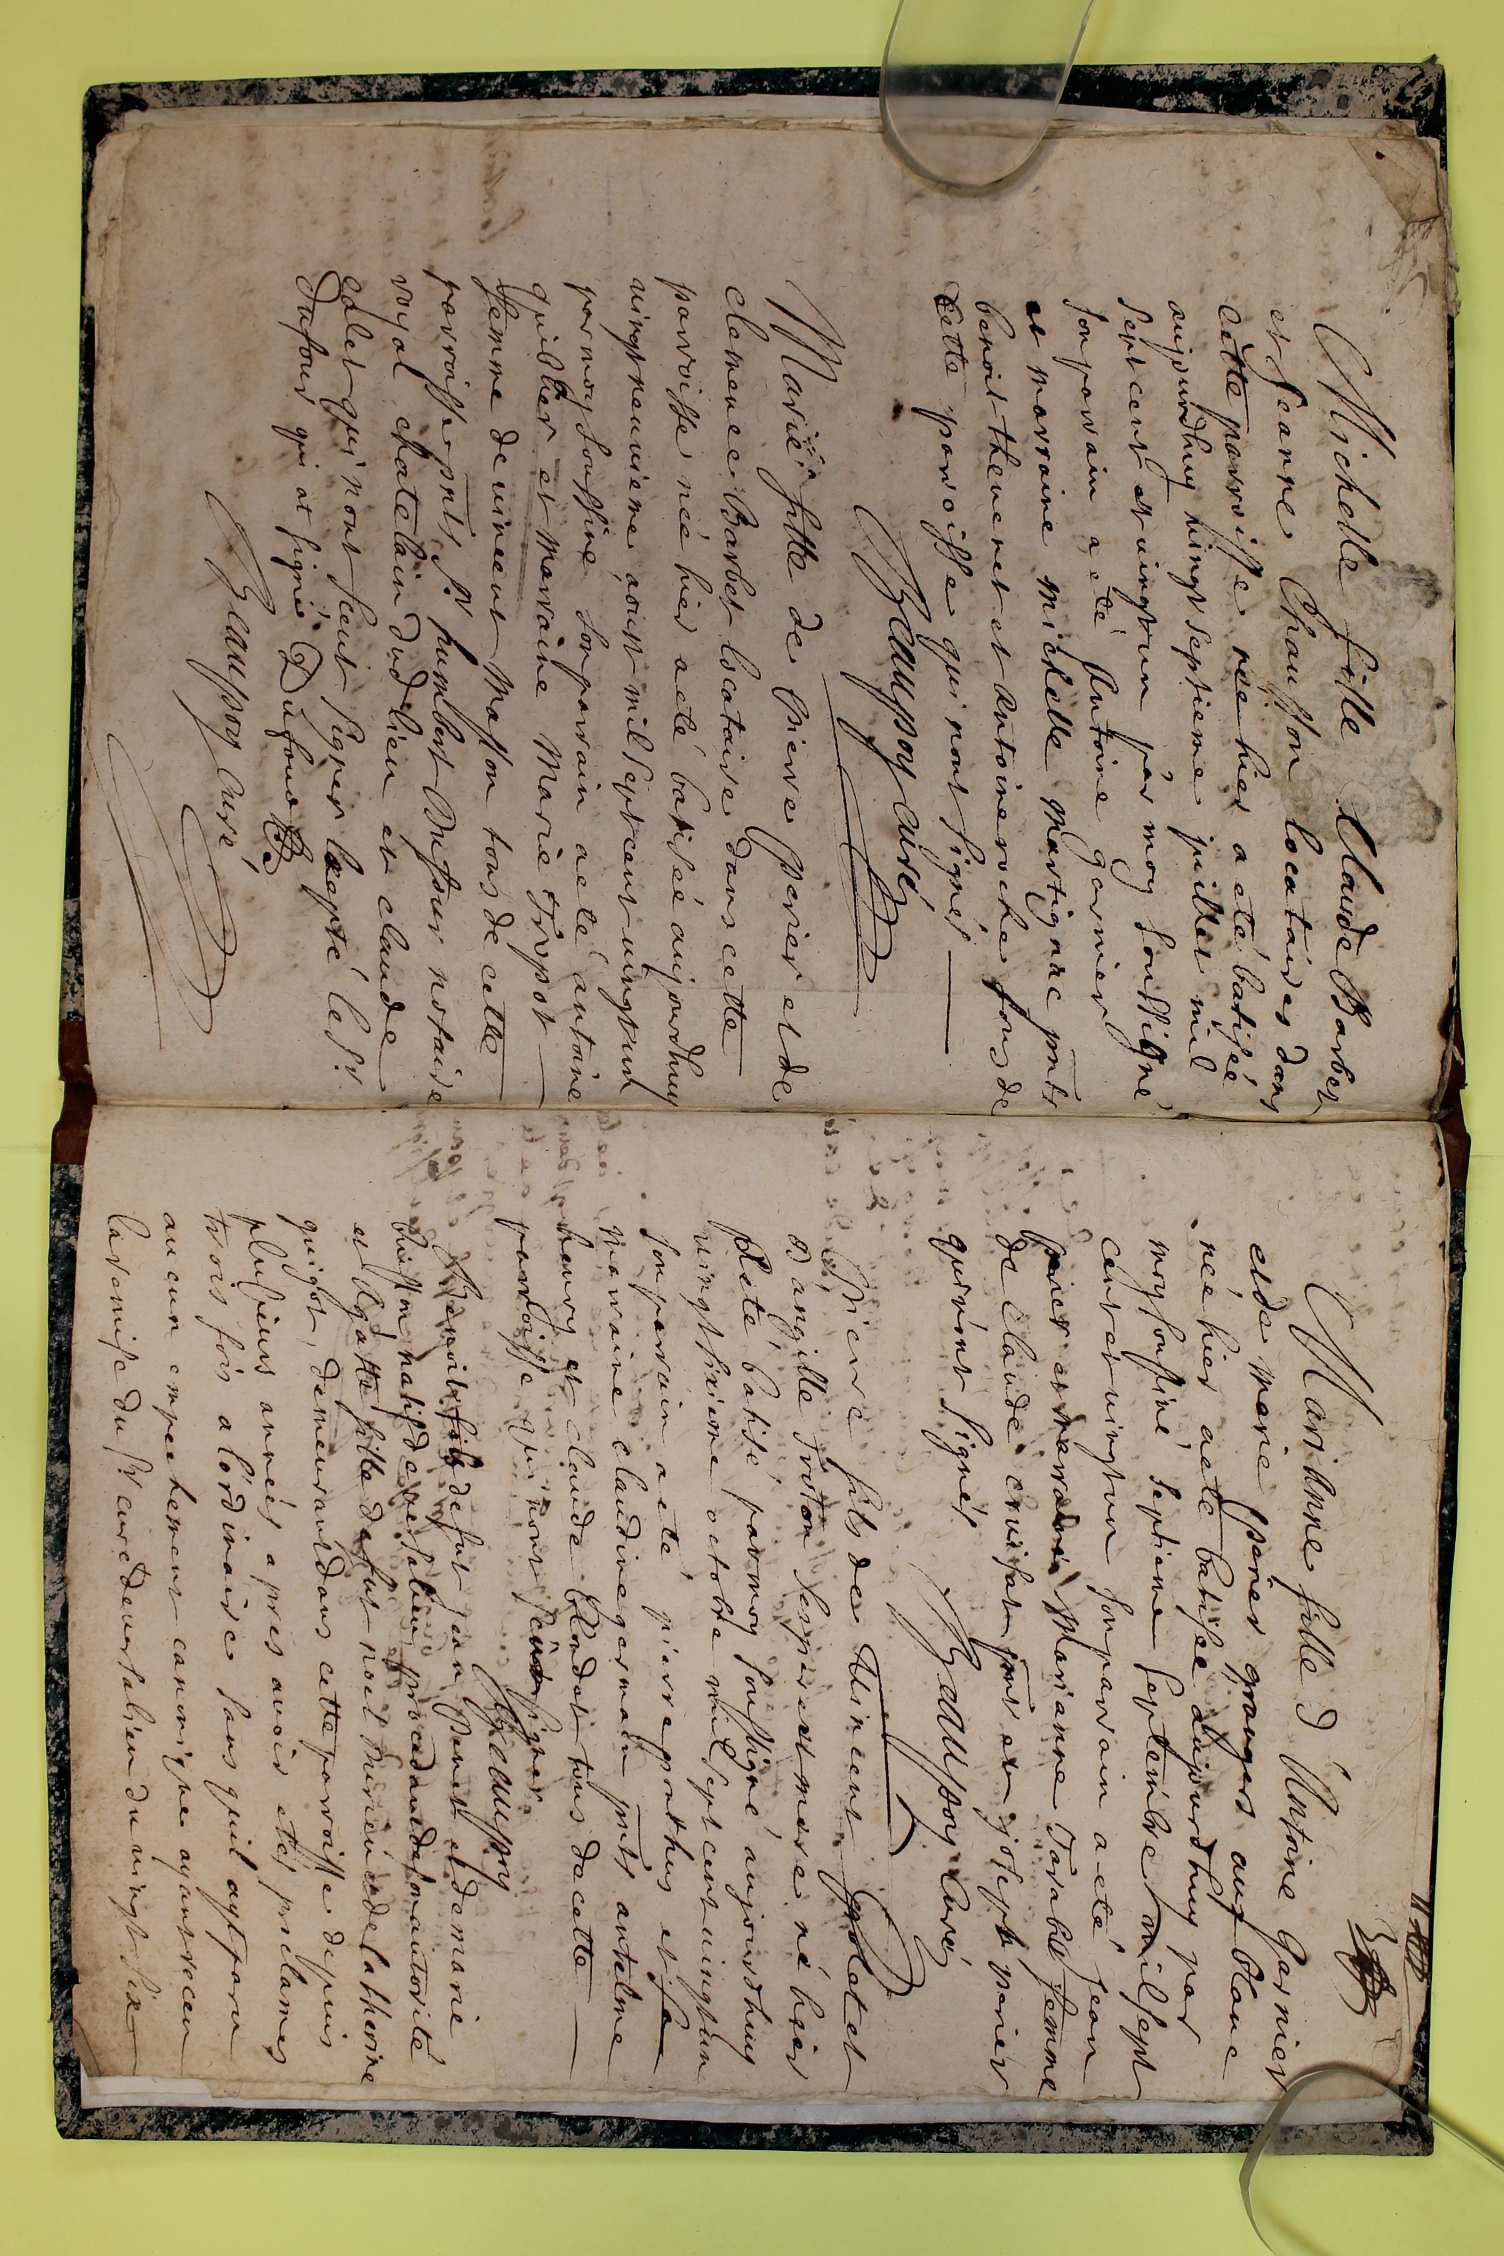 Michelle fille Claude Barbet
et Jeanne Chausson locataires dans
cette parroisse née hier a eté batisée
aujourdhuy vingt septieme juillet mil
sept cent et vingt un par moy soussigné
son parrain a eté Antoine garnier
et marraine michelle martignac pnts
benoist thevenet et antoine roche tous de
cette parroisse qui nont signés
Beaupoy curé
Marie fille de Pierre Perier et de
clemence Barbet locataire dans cette
parroisse née hier a eté batisée aujourdhuy
vingt neuvieme aoust mil sept cent vingt un
par moy soussiné son parrain a eté antoine
quiblier et marraine Marie Trypot
femme de vincent masson tous de cette
parroisse pnts Sr humbert Dufour notaire
royal chatelain dud lieu et claude
colet qui nont sceut signer excepté led Sr
dufour qui at signé Dufour
Beaupoy Curé
Marianne fille d'Antoine Garnier
et de marie Perier grangers aux blanc
née hier a eté batisée aujourdhuy par
moy soussiné septieme septembre mil sept
cent et vingt un son parrain a eté Jean
Perier et marraine Marianne Torable femme
de claude cruisat pnts et joseph perier
qui nont signés
Beaupoy Curé
Pierre fils de Vincent Grolet et
d angille Truton ses pere et mere né hier
a eté batisé par moy soussigné aujourdhuy
vingt sixieme octobre mil sept cent vingt un
son parrain a eté pierre ponthus et sa
maraine claudine germain pnts antelme
henry et claude Blodat tous de cette
parroisse qui nont sceu signer
Beaupoy
Benoist fils de fut jean Panet et de marie
buisson natif de versalieu procedant de son autorité
et Agatte fille de fut noel Murieu et de catherine
guigot, demeurant dans cette parroisse depuis
plusieurs années apres avoir etés proclames
trois fois a l'ordinaire sans quil ayt paru
aucun empechement canonique ayant receu
la remise du Sr curé de versalieu du vingt six